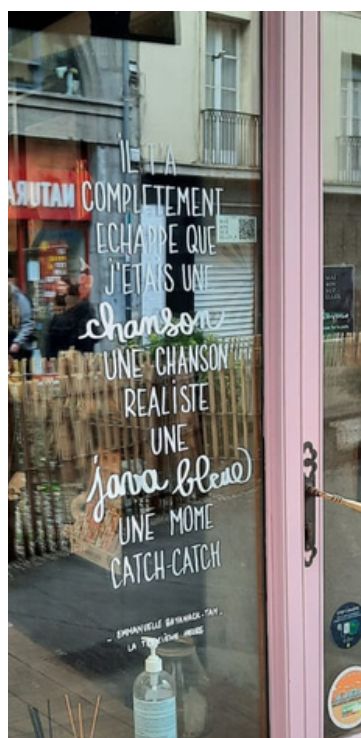 IL T'A
COMPLETEMENT
ECHAPPE QUE
J'ETAIS UNE
chanson
UNE CHANSON
REALISTE
UNE
java bleue
UNE MOME
CATCH-CATCH
- EMMANUELLE BAYAMACK-TAM -
LA TREIZIÈME HEURE
NATURA